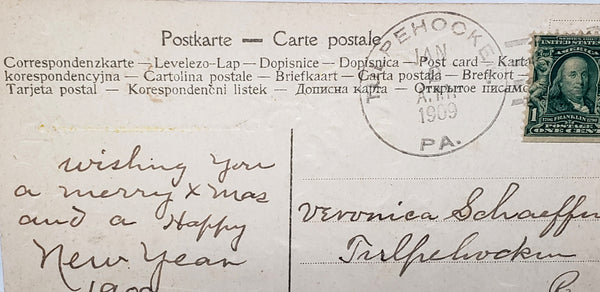 Postkarte — Carte postale
Correspondenzkarte – Levelezo-Lap – Dopisnice – Dopisnica – Post card – Karta
korespondencyjna – Cartolina postale – Briefkaart – Carta poștală – Brefkort –
Tarjeta postal – Korespondenční listek – Дописна карта – Открытое письмо
TULPEHOCKEN
JAN
A.M.
1909
PA.
1 FRANKLIN
POSTAGE
ONE CENT
wishing you
a merry xmas
and a Happy
New Year
Veronica
Tulpehocken